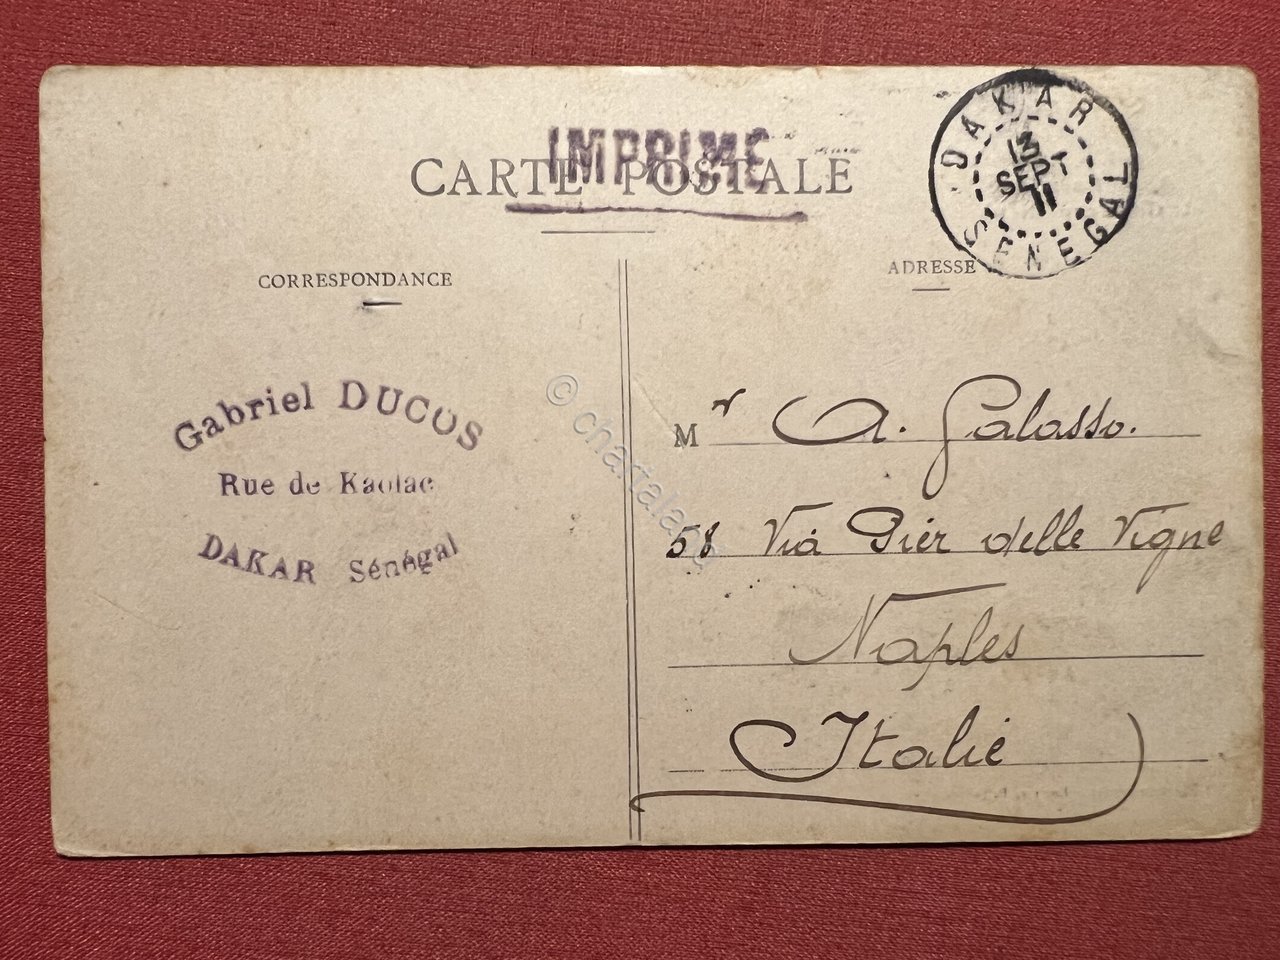 IMPRIMÉ
CARTE POSTALE
DAKAR
13 SEPT 11
SENEGAL
CORRESPONDANCE
Gabriel DUCOS
Rue de Kaolac
DAKAR Sénégal
ADRESSE
Mr A. Galasso.
58 Via Pier delle Vigne
Naples
Italie
© chartaland